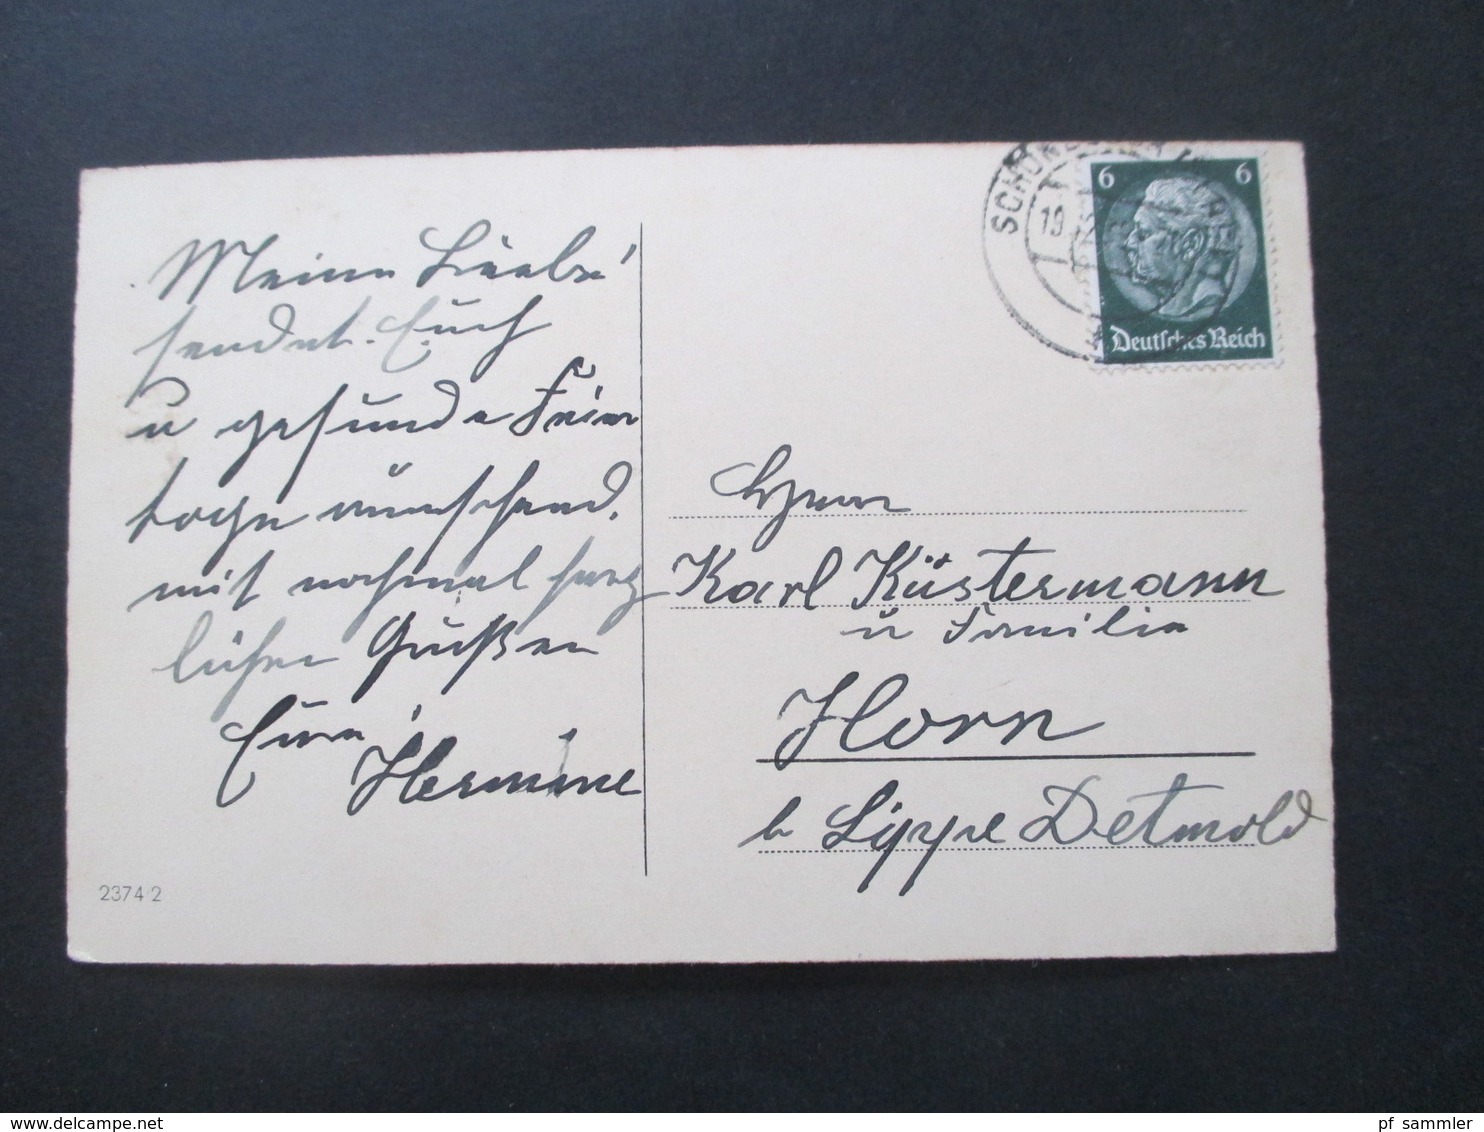 Meine Lieben!
sendet Euch
u gesunde Feier
tage wünschend.
mit nochmal herz
lichen Grüßen
Eure
Hermine
23742
6 6
Deutsches Reich
19
Herrn
Karl Küstermann
u Familie
Horn
b Lippe Detmold
pf sammler